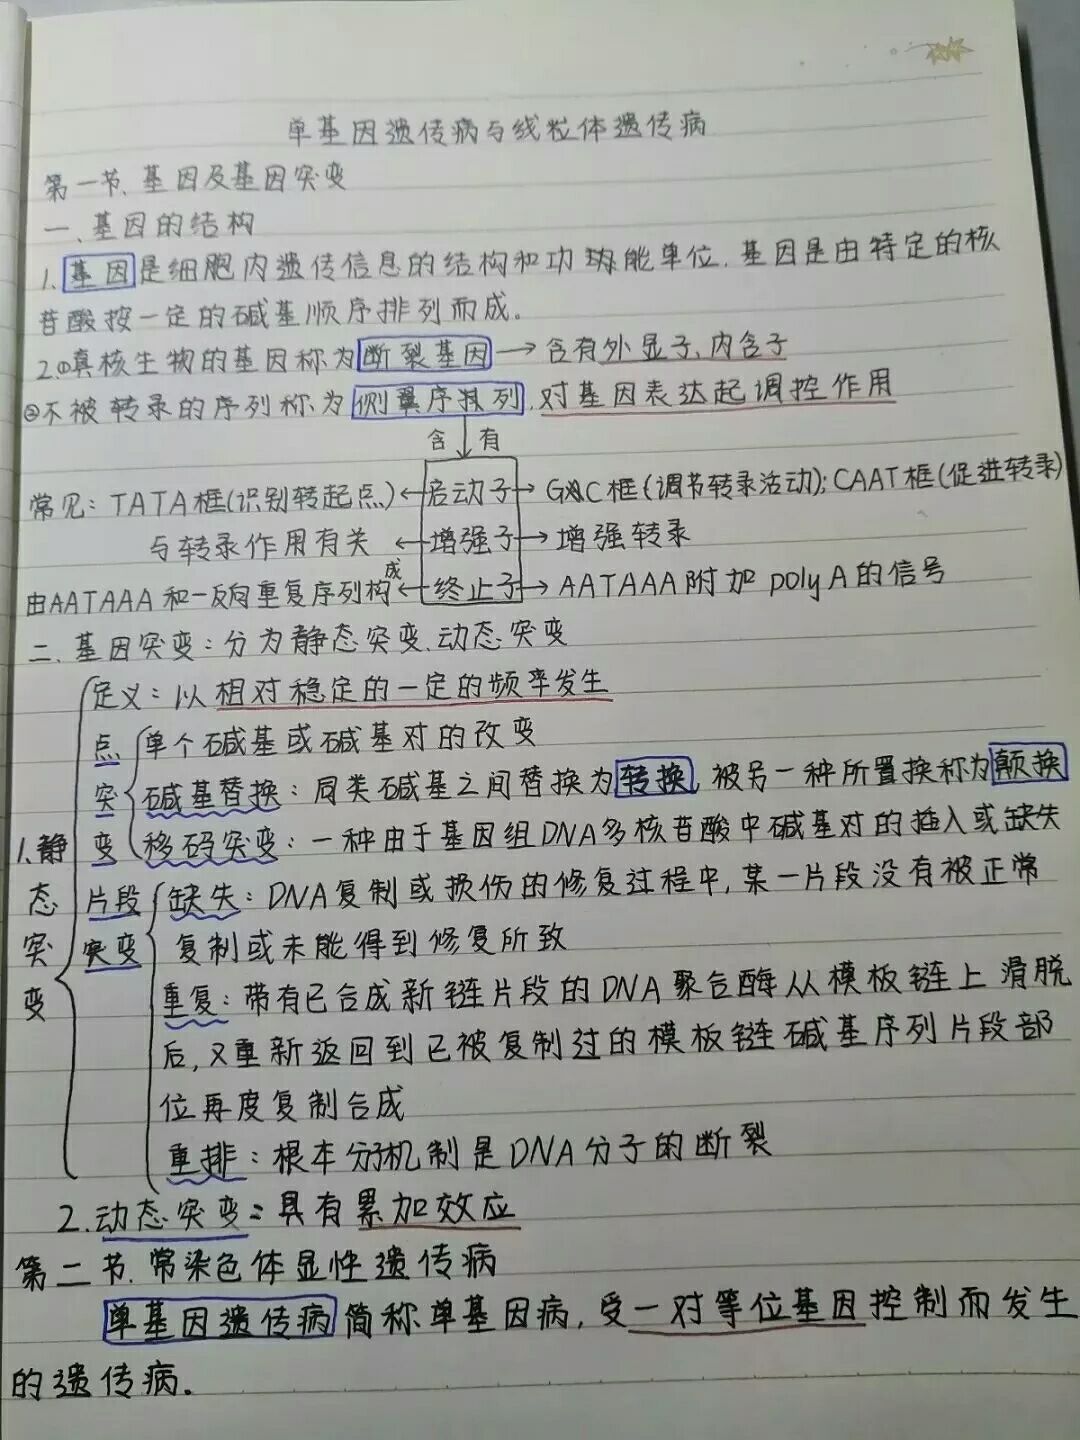 单基因遗传病与线粒体遗传病
第一节、基因及基因突变
一、基因的结构
1.基因是细胞内遗传信息的结构和功能单位.基因是由特定的核
苷酸按一定的碱基顺序排列而成。
2.①真核生物的基因称为断裂基因→含有外显子、内含子
②不被转录的序列称为侧翼序列,对基因表达起调控作用
含有
常见:TATA框(识别转起点)←启动子→GC框(调节转录活动);CAAT框(促进转录)
与转录作用有关←增强子→增强转录
由AATAAA和一反向重复序列构成←终止子→AATAAA附加polyA的信号
二、基因突变:分为静态突变、动态突变
定义:以相对稳定的一定的频率发生
点 单个碱基或碱基对的改变
突 碱基替换:同类碱基之间替换为转换,被另一种所置换称为颠换
1.静 变 移码突变:一种由于基因组DNA多核苷酸中碱基对的插入或缺失
态 片段 缺失:DNA复制或损伤的修复过程中,某一片段没有被正常
突 突变 复制或未能得到修复所致
变 重复:带有已合成新链片段的DNA聚合酶从模板链上滑脱
后,又重新返回到已被复制过的模板链碱基序列片段部
位再度复制合成
重排:根本分子机制是DNA分子的断裂
2.动态突变:具有累加效应
第二节.常染色体显性遗传病
单基因遗传病简称单基因病,受一对等位基因控制而发生
的遗传病.